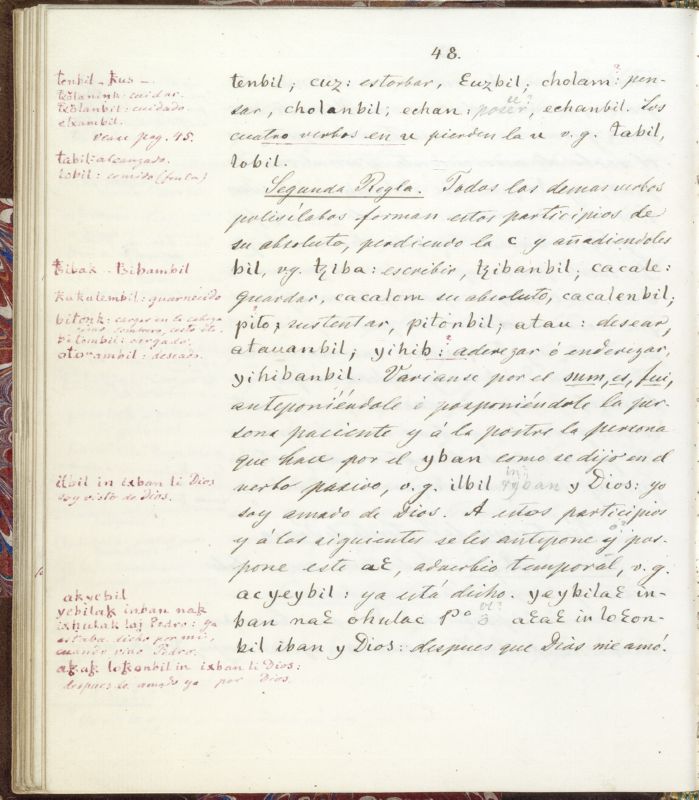 48.
tenbil; cuz: estorbar, Ɛuzbil; cholam: pen-
sar, cholanbil; echan: poser, echanbil. Los
cuatro verbos en u pierden la u v.g. tabil,
lobil.
Segunda Regla. Todos los demas verbos
polisílabos forman estos participios de
su absoluto, perdiendo la c y añadiendoles
bil, vg. tziba: escribir, tzibanbil; cacale:
guardar, cacalem su absoluto, cacalenbil;
pito, sustentar, pitonbil; atau: desear,
atauanbil; yihib: aderezar ó enderezar,
yihibanbil. Varianse por el sum, es, fui,
anteponiéndole ó posponiéndole la per-
sona paciente y á la postre la persona
que hace por el yban como se dijo en el
verbo pasivo, v.g. ilbil y Dios: yo
soy amado de Dios. A estos participios
y á los siguientes se les antepone y pos-
pone este aƐ, adverbio temporál, v.g.
acyeybil: ya está dicho. yeybilaƐ in-
ban naƐ ohulac Pº aƐaƐ in loƐon-
bil iban y Dios: despues que Dios me amó.
tenbil - kus -.
cuidar.
cuidado.
elxambil.
vease pag. 45.
tabil: alcanzado.
lobil: comido (fruta)
tzibak - tzibambil
kakalembil: guarnecido
bitonk: cargar en la cabeza
como sombrero, cesto etc.
bitombil: cargado.
otorambil: deseado.
ilbil in ixban li Dios
soy visto de Dios.
akyebil
yebilak inban nak
ixhulak laj Pedro: ya
estaba dicho por mi,
cuando vino Pedro.
akak lokonbil in ixban li Dios:
despues de amado yo por Dios.